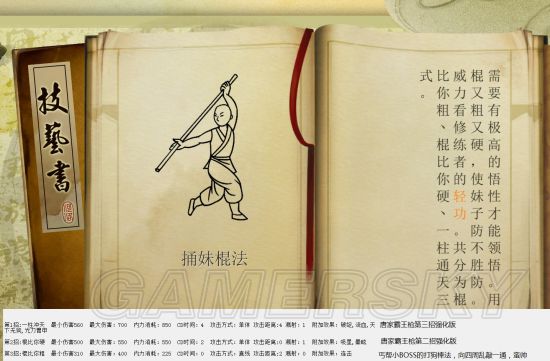 技藝書
捅妹棍法
需要有极高的悟性才能领悟。用
棍又粗又硬，使妹子防不胜防。
威力看修练者的轻功。共分为棍
比你粗、棍比你硬、一柱通天三
式。
GAMERSKY
第1招:一柱冲天 最小伤害560 最大伤害:700 内力消耗:850 CD时间:4 攻击方式:单体 攻击距离:4 溅射:1 附加效果:破绽,流血,天下无狗,光刀冒甲 唐家霸王枪第三招强化版
第2招:棍比你硬 最小伤害500 最大伤害:550 内力消耗:550 CD时间:3 攻击方式:单体 攻击距离:1 溅射:1 附加效果:吸星,晕眩 唐家霸王枪第二招强化版
第3招:棍比你粗 最小伤害310 最大伤害:400 内力消耗:225 CD时间:0 攻击方式:直线 攻击距离:2 溅射:0 附加效果:连击 丐帮小BOSS的打狗棒法，向四周乱敲一通，蛮帅